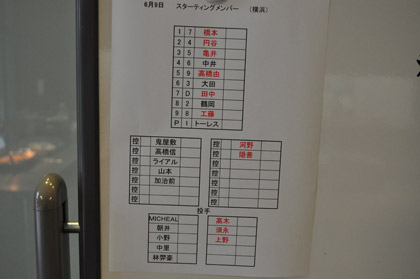 6月9日 スターティングメンバー (横浜)
1 7 橋本
2 4 円谷
3 5 亀井
4 6 中井
5 9 高橋由
6 3 大田
7 D 田中
8 2 鶴岡
9 8 工藤
P 1 トーレス
控 鬼屋敷
控 高橋信
控 ライアル
控 山本
控 加治前
控
控
控 河野
控 隠善
控
控
控
控
投手
MICHEAL
朝井
小野
中里
林羿豪
高木
須永
上野